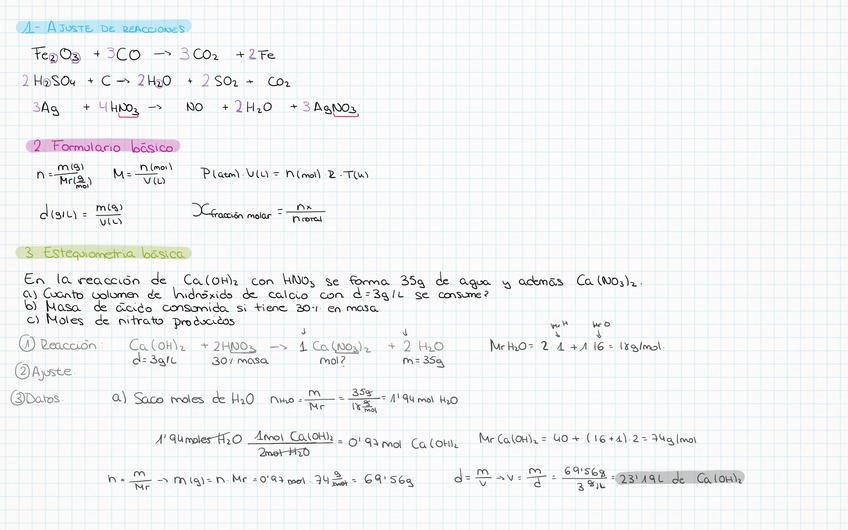 1- AJUSTE DE REACCIONES
Fe₂O₃ + 3CO → 3CO₂ + 2Fe
2H₂SO₄ + C → 2H₂O + 2SO₂ + CO₂
3Ag + 4HNO₃ → NO + 2H₂O + 3AgNO₃
2 Formulario básico
n = m(g) / Mr(g/mol) M = n(mol) / V(L) P(atm) · V(L) = n(mol) R · T(K)
d(g/L) = m(g) / V(L) X fracción molar = nx / n total
3 Estequiometria básica
En la reacción de Ca(OH)₂ con HNO₃ se forma 35g de agua y además Ca(NO₃)₂.
a) Cuanto volumen de hidróxido de calcio con d=3g/L se consume?
b) Masa de ácido consumida si tiene 30% en masa
c) Moles de nitrato producidos
Mr H Mr O
① Reacción: Ca(OH)₂ + 2HNO₃ → 1 Ca(NO₃)₂ + 2 H₂O Mr H₂O = 2 · 1 + 1 · 16 = 18g/mol.
d=3g/L 30% masa mol? m=35g
② Ajuste
③ Datos. a) Saco moles de H₂O nH₂O = m / Mr = 35g / 18 g/mol = 1'94 mol H₂O
1'94 moles H₂O · 1mol Ca(OH)₂ / 2mol H₂O = 0'97 mol Ca(OH)₂ Mr Ca(OH)₂ = 40 + (16+1) · 2 = 74g/mol
n = m / Mr → m(g) = n · Mr = 0'97 mol · 74 g/mol = 69'56g d = m / v → v = m / d = 69'56g / 3 g/L = 23'19L de Ca(OH)₂